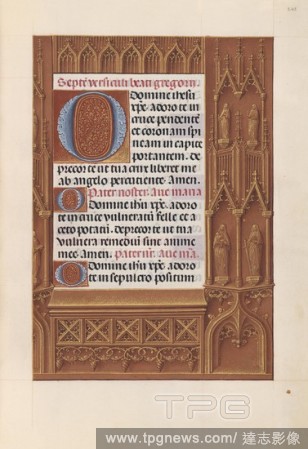 Septē versiculi beati gregorii.
O Domine ihesu
xp̄e adoro te in
cruce pendentē
et coronam spi
neam in capite
portantem. de
precor te ut tua crux liberet me
ab angelo percuciente. amen.
Pater noster. Aue maria
O Domine ihū xp̄e adoro
te in cruce vulneratū felle et a
ceto potatū. deprecor te ut tua
vulnera remediū sint anime
mee. amen. pater nr̄. aue ma.
O Domine ihū xp̄e adoro
te in sepulcro positum
TPG
www.tpgnews.com/ 達志影像